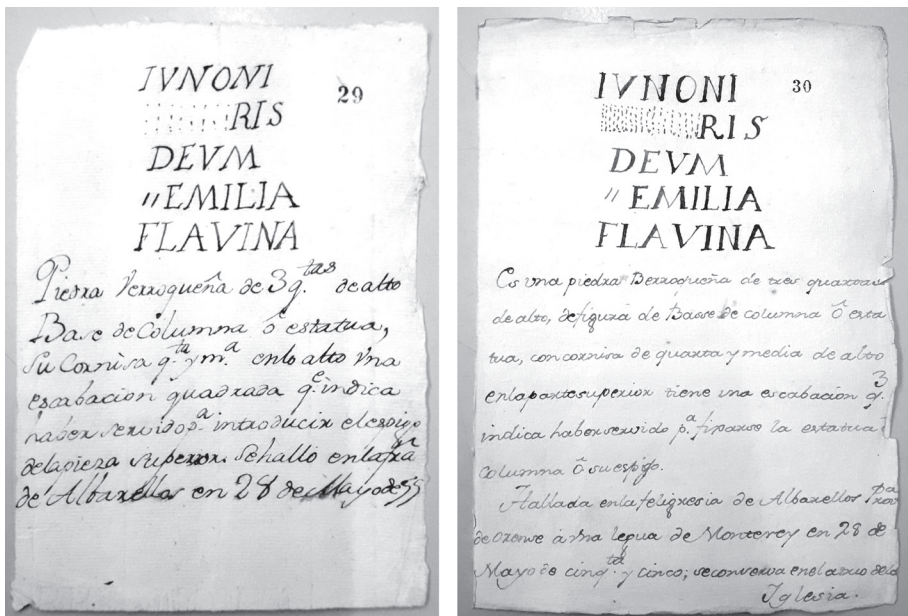 IVNONI
29
RIS
DEVM
"EMILIA
FLAVINA
Piedra Verroqueña de 3 q.tas de alto
Base de Columna ô estatua,
su Cornisa q.ta y m.a en lo alto vna
escabacion quadrada q.e indica
haber servido p.a introducir el espigo
de la pieza superior. Se hallo en la
de Albarellos en 28 de Mayo de 55
IVNONI
30
RIS
DEVM
" EMILIA
FLAVINA
Es vna piedra Berroqueña de tres quartas
de alto, de figura de Basse de columna ô esta
tua, con cornisa de quarta y media de alto
en la parte superior tiene vna escabacion q.
indica haber servido p.a fixarse la estatua
columna ô su espigo.
Hallada en la feligresia de Albarellos
de Orense à vna legua de Monterey en 28 de
Mayo de cinq.ta y cinco; se conserva en el atrio de la
Iglesia.